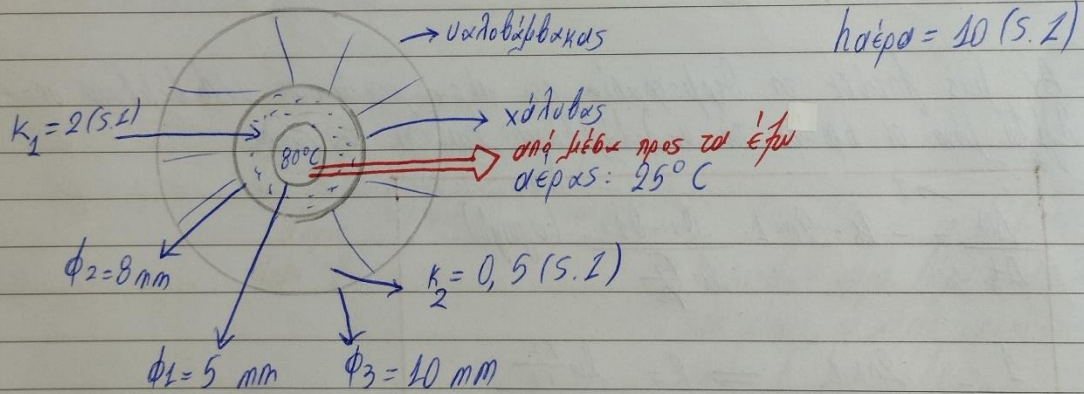 → υαλοβάμβακας
hαέρα = 10 (S.I)
k₁ = 2 (S.I)
→ χάλυβας
80°C
από μέσα προς τα έξω
αέρας: 25° C
φ2 = 8 mm
k₂ = 0,5 (S.I)
φ1 = 5 mm
φ3 = 10 mm